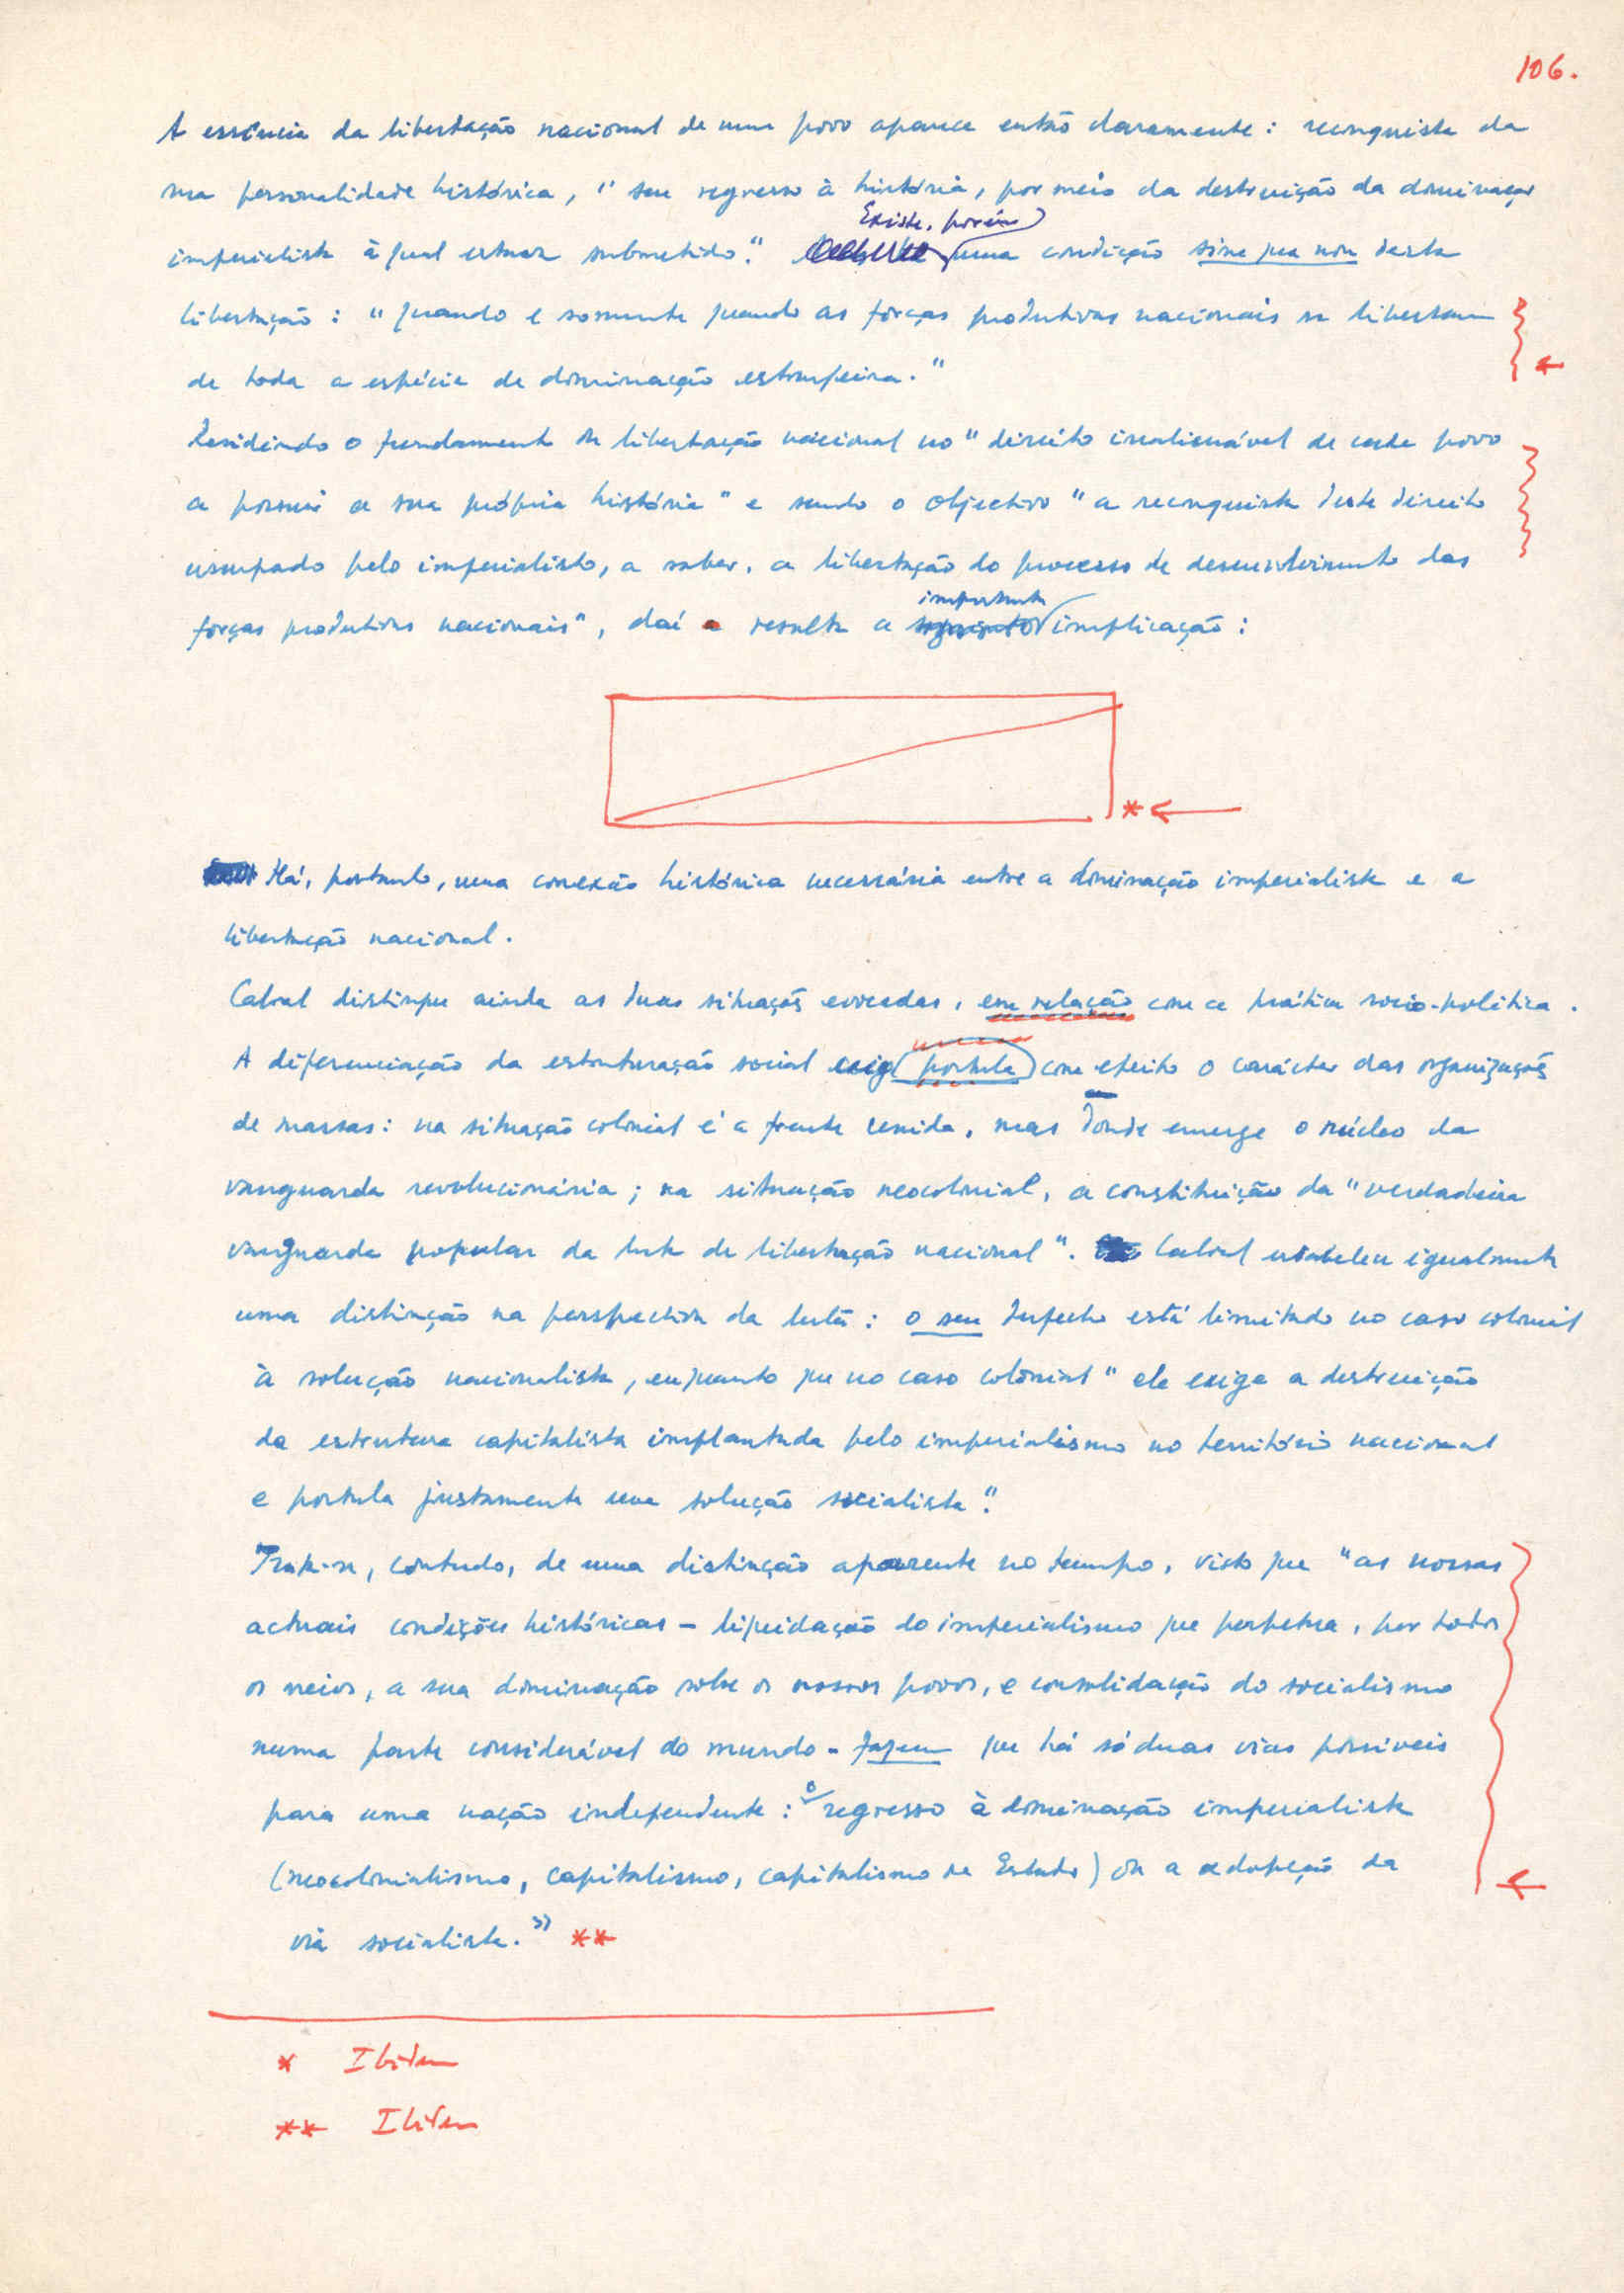 106.
A essência da libertação nacional de um povo aparece então claramente: reconquista da
sua personalidade histórica, "seu regresso à história, por meio da destruição da dominação
Existe, porém
imperialista à qual estava submetido." uma condição sine qua non desta
libertação: "quando e somente quando as forças produtivas nacionais se libertam
de toda a espécie de dominação estrangeira."
Residindo o fundamento da libertação nacional no "direito inalienável de cada povo
a possuir a sua própria história" e sendo o objectivo "a reconquista deste direito
usurpado pelo imperialista, a saber, a libertação do processo de desenvolvimento das
importante
forças produtivas nacionais", daí resulta a implicação:
*
Há, portanto, uma conexão histórica necessária entre a dominação imperialista e a
libertação nacional.
Cabral distingue ainda as duas situações evocadas, em relação com a prática socio-política.
A diferenciação da estruturação social postula com efeito o carácter das organizações
de massas: na situação colonial é a frente unida, mas donde emerge o núcleo da
vanguarda revolucionária; na situação neocolonial, a constituição da "verdadeira
vanguarda popular da luta de libertação nacional". Cabral estabelece igualmente
uma distinção na perspectiva da luta: o seu desfecho está limitado no caso colonial
à solução nacionalista, enquanto que no caso colonial "ele exige a destruição
da estrutura capitalista implantada pelo imperialismo no território nacional
e postula justamente uma solução socialista".
Trata-se, contudo, de uma distinção aparente no tempo, visto que "as nossas
actuais condições históricas - liquidação do imperialismo que perpetua, por todos
os meios, a sua dominação sobre os nossos povos, e consolidação do socialismo
numa parte considerável do mundo - fazem que há só duas vias possíveis
para uma nação independente: o regresso à dominação imperialista
(neocolonialismo, capitalismo, capitalismo de Estado) ou a adopção da
via socialista." **
* Ibidem
** Ibidem